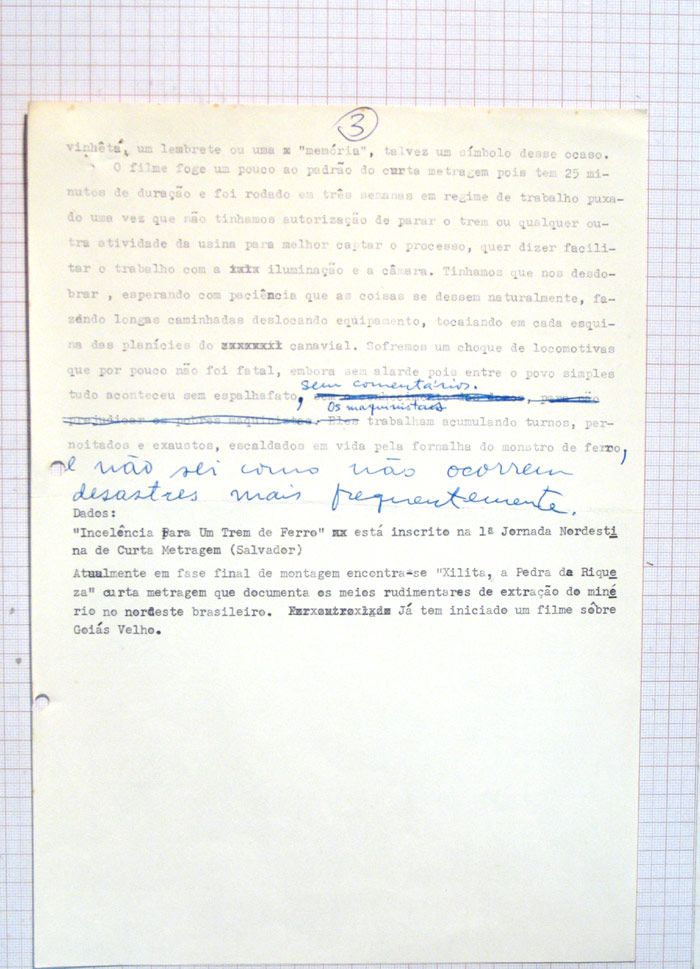 3
vinhêta, um lembrete ou uma x "memória", talvez um símbolo desse ocaso.
O filme foge um pouco ao padrão do curta metragem pois tem 25 mi-
nutos de duração e foi rodado em três semanas em regime de trabalho puxa-
do uma vez que não tinhamos autorização de parar o trem ou qualquer ou-
tra atividade da usina para melhor captar o processo, quer dizer facili-
tar o trabalho com a iluminação e a câmara. Tinhamos que nos desdo-
brar , esperando com paciência que as coisas se dessem naturalmente, fa-
zendo longas caminhadas deslocando equipamento, tocaiando em cada esqui-
na das planícies do canavial. Sofremos um choque de locomotivas
que por pouco não foi fatal, embora sem alarde pois entre o povo simples
sem comentários.
tudo aconteceu sem espalhafato, para não
Os maquinistas
prejudicar os pobres maquinistas. Eles trabalham acumulando turnos, per-
noitados e exaustos, escaldados em vida pela fornalha do monstro de ferro,
e não sei como não ocorrem
desastres mais frequentemente.
Dados:
"Incelência Para Um Trem de Ferro" xx está inscrito na 1ª Jornada Nordesti
na de Curta Metragem (Salvador)
Atualmente em fase final de montagem encontra-se "Xilita, a Pedra da Rique
za" curta metragem que documenta os meios rudimentares de extração do miné
rio no nordeste brasileiro. Já tem iniciado um filme sôbre
Goiás Velho.